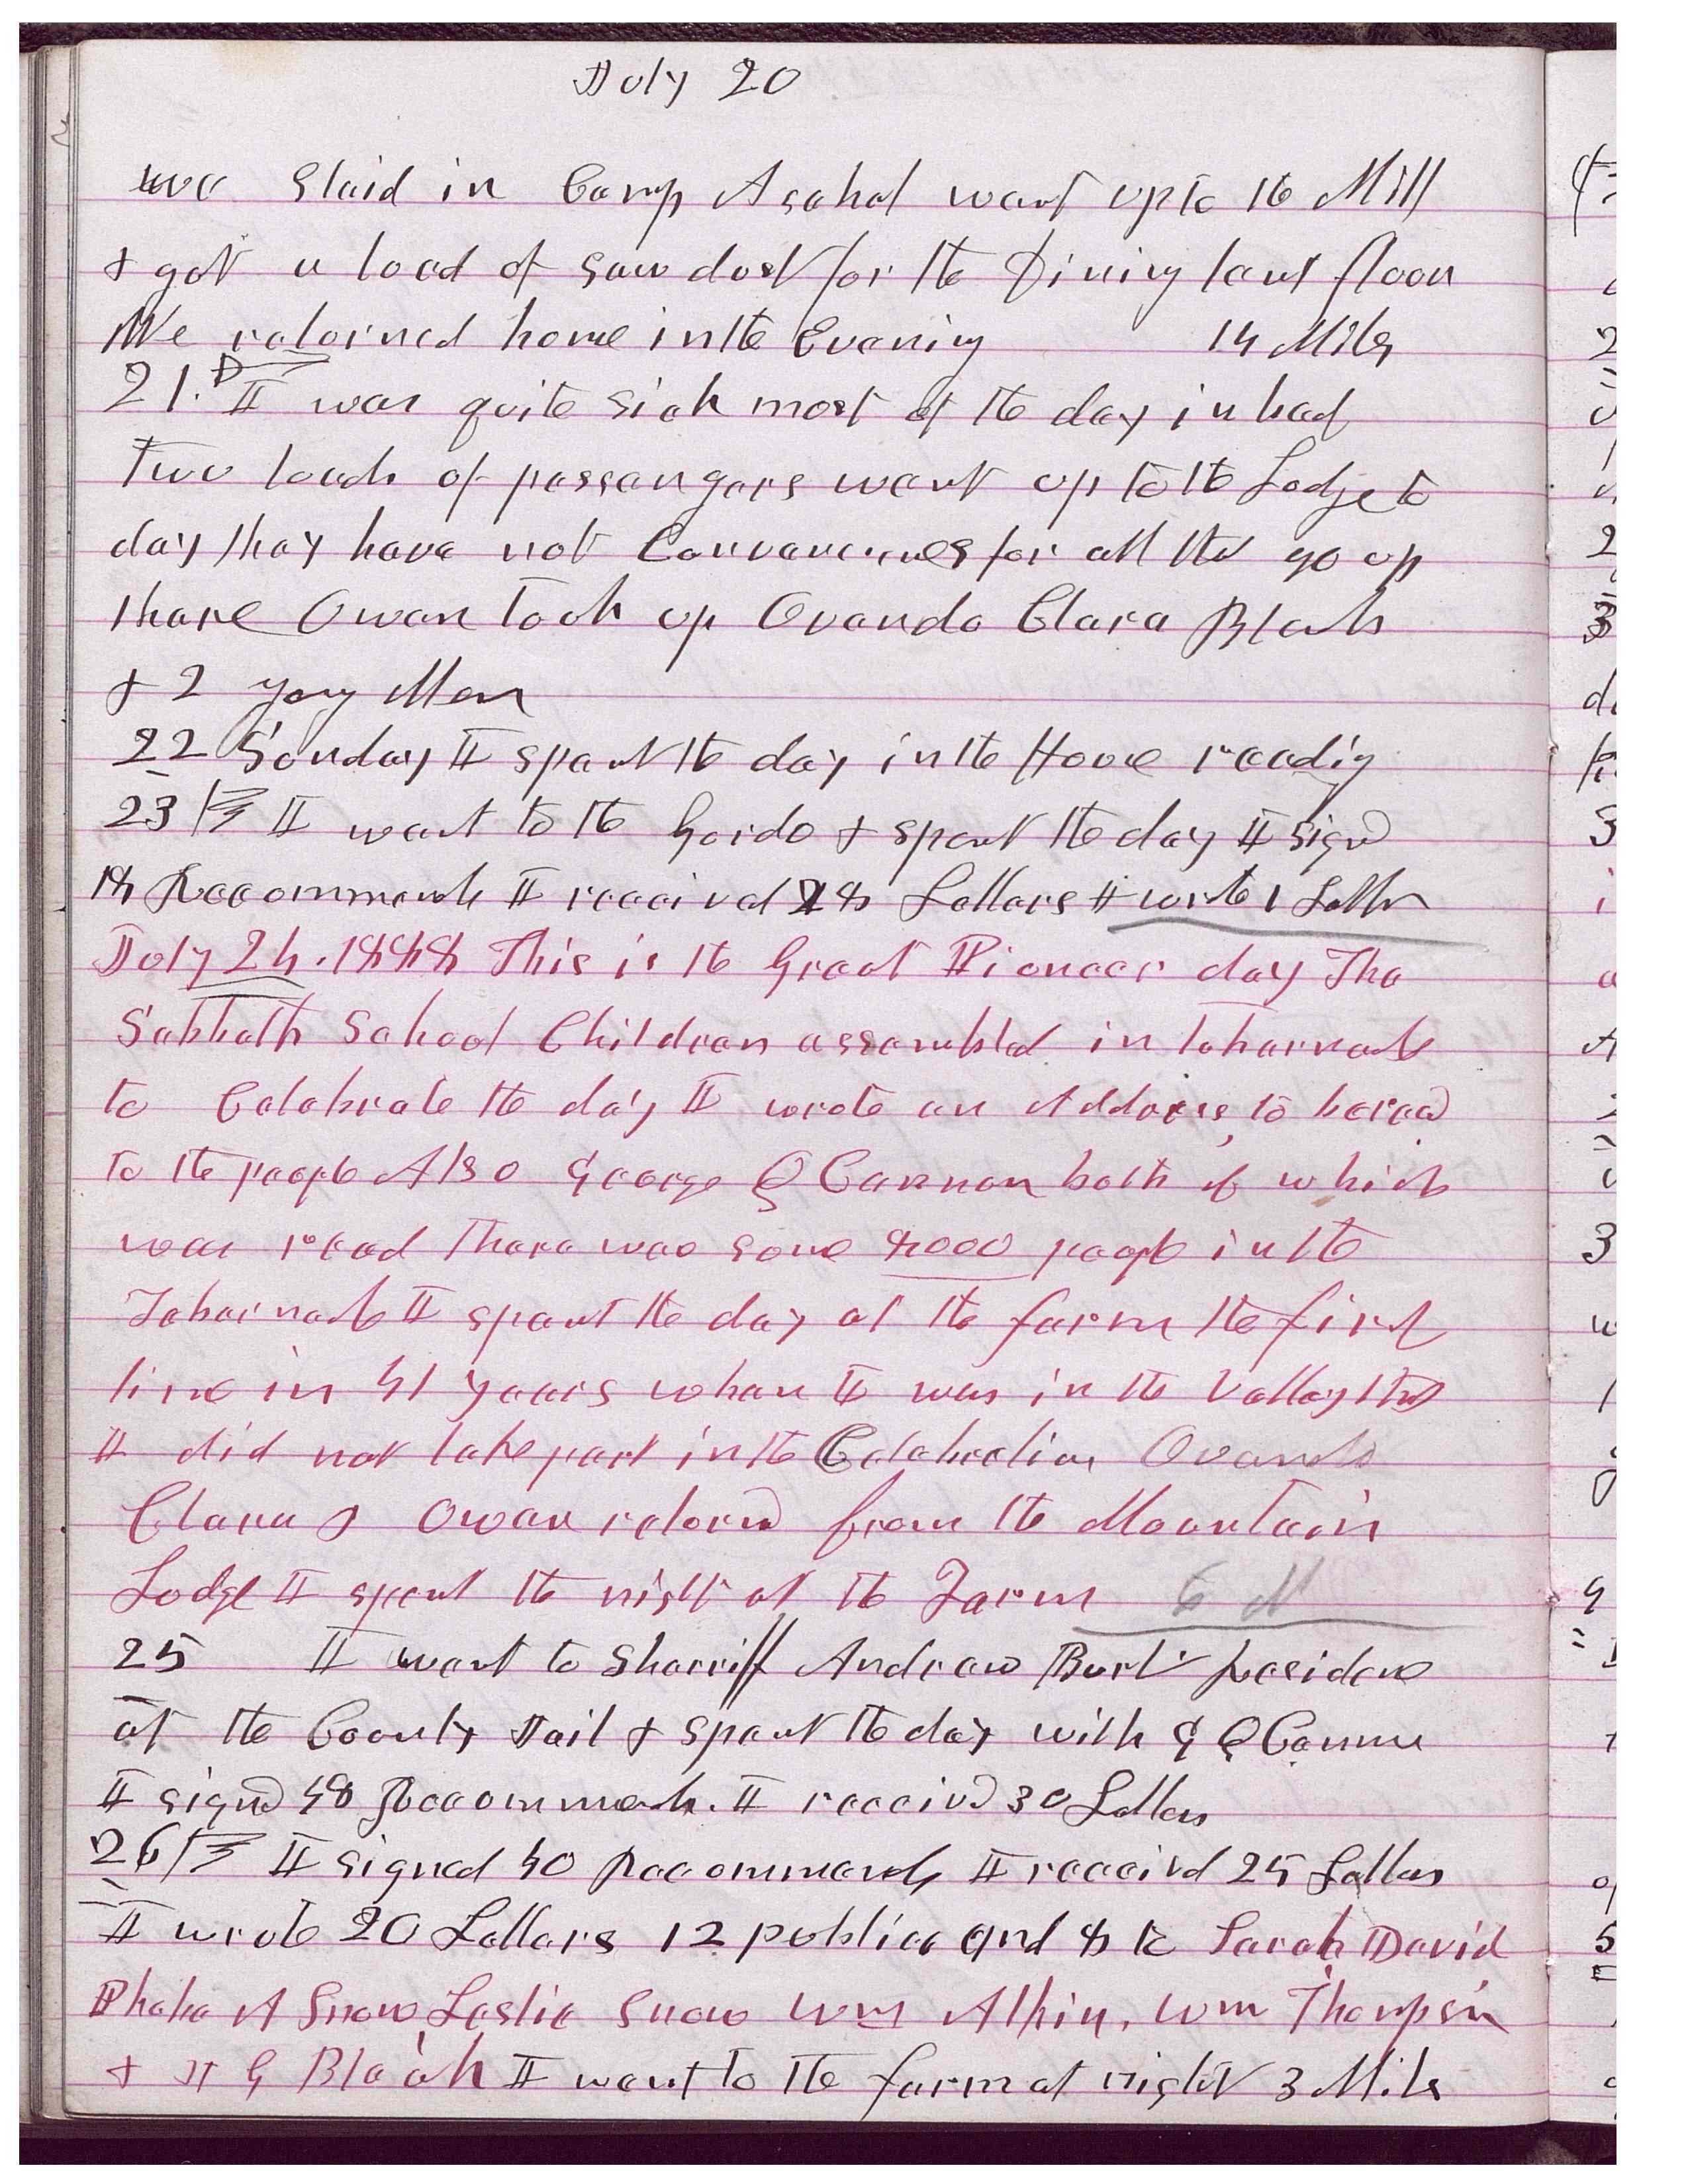 July 20
we Staid in Camp Asahel went up to the Mill
& got a load of saw dust for the Dining tent floor
We returned home in the Evening 14 Miles
21. I was quite sick most of the day in bed
Two loads of passengers went up to the Lodge to
day they have not Conveniences for all that go up
there Owen took up Ovando Clara Black
& 2 yong Men
22 Sunday I spent the day in the House reading
23 I went to the Gardo & spent the day I signd
18 Recommends I received 28 Letters I wrote 1 Letter
July 24. 1888 This is the Great Pioneer day The
Sabbath School Children assembled in Tabernacle
to Celebrate the day I wrote an Address to be read
to the people Also George Q Cannon both of which
was read There was some 8000 people in the
Tabernacle I spent the day at the farm the first
time in 41 years when I was in the Valley that
I did not take part in the Celebration Ovando
Clara & Owen returnd from the Mountain
Lodge I spent the night at the Farm 6 M
25 I went to Sherriff Andrew Burt residence
at the County Jail & spent the day with G Q Cannon
I signd 48 Recommends. I receivd 30 Letters
26 I signed 40 Recommends I receivd 25 Letters
I wrote 20 Letters 12 public and 8 to Sarah David
Phebe A Snow Leslie Snow Wm Atkin, Wm Thompson
& H G Black I went to the farm at night 3 Miles